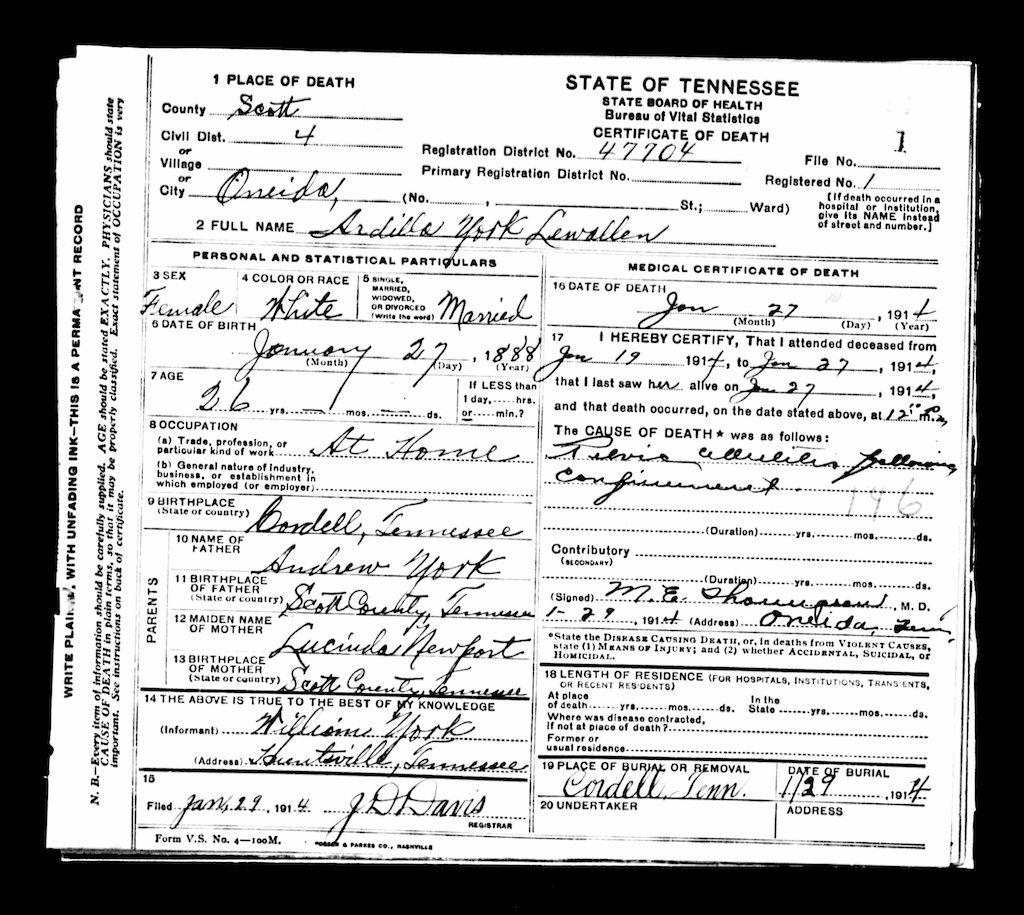 WRITE PLAINLY, WITH UNFADING INK—THIS IS A PERMANENT RECORD
N. B.—Every item of information should be carefully supplied. AGE should be stated EXACTLY. PHYSICIANS should state
CAUSE OF DEATH in plain terms, so that it may be properly classified. Exact statement of OCCUPATION is very
important. See instructions on back of certificate.
1 PLACE OF DEATH
County Scott
Civil Dist. 4
or
Village
or
City Oneida, (No. , St.; Ward)
STATE OF TENNESSEE
STATE BOARD OF HEALTH
Bureau of Vital Statistics
CERTIFICATE OF DEATH
Registration District No. 47704
Primary Registration District No.
File No. 1
Registered No. 1
[If death occurred in a
hospital or institution,
give its NAME instead
of street and number.]
2 FULL NAME Ardilla York Lewallen
PERSONAL AND STATISTICAL PARTICULARS
3 SEX
Female
4 COLOR OR RACE
White
5 SINGLE,
MARRIED,
WIDOWED,
OR DIVORCED
(Write the word) Married
6 DATE OF BIRTH
January 27, 1888
(Month) (Day) (Year)
7 AGE
26 yrs. — mos. — ds.
If LESS than
1 day, hrs.
or min.?
8 OCCUPATION
(a) Trade, profession, or
particular kind of work At Home
(b) General nature of industry,
business, or establishment in
which employed (or employer)
9 BIRTHPLACE
(State or country) Cordell, Tennessee
PARENTS
10 NAME OF
FATHER Andrew York
11 BIRTHPLACE
OF FATHER
(State or country) Scott County, Tennessee
12 MAIDEN NAME
OF MOTHER Lucinda Newport
13 BIRTHPLACE
OF MOTHER
(State or country) Scott County Tennessee
14 THE ABOVE IS TRUE TO THE BEST OF MY KNOWLEDGE
(Informant) William York
(Address) Huntsville, Tennessee
15
Filed Jan, 29, 1914 J D Davis
REGISTRAR
Form V.S. No. 4—100M.
& PARKES CO., NASHVILLE
MEDICAL CERTIFICATE OF DEATH
16 DATE OF DEATH
Jan 27, 1914
(Month) (Day) (Year)
17 I HEREBY CERTIFY, That I attended deceased from
Jan 19 1914, to Jan 27, 1914,
that I last saw her alive on Jan 27, 1914,
and that death occurred, on the date stated above, at 12
The CAUSE OF DEATH* was as follows:
Pelvic cellulitis following
confinement
146
(Duration) yrs. mos. ds.
Contributory
(SECONDARY)
(Duration) yrs. mos. ds.
(Signed) M. E. Thompson, M. D.
1-29, 1914 (Address) Oneida, Tenn,
*State the DISEASE CAUSING DEATH, or, in deaths from VIOLENT CAUSES,
state (1) MEANS OF INJURY; and (2) whether ACCIDENTAL, SUICIDAL, or
HOMICIDAL.
18 LENGTH OF RESIDENCE (FOR HOSPITALS, INSTITUTIONS, TRANSIENTS,
OR RECENT RESIDENTS)
At place
of death yrs. mos. ds.
In the
State yrs. mos. ds.
Where was disease contracted,
if not at place of death?
Former or
usual residence
19 PLACE OF BURIAL OR REMOVAL
Cordell, Tenn.
DATE OF BURIAL
1/29, 1914
20 UNDERTAKER
ADDRESS